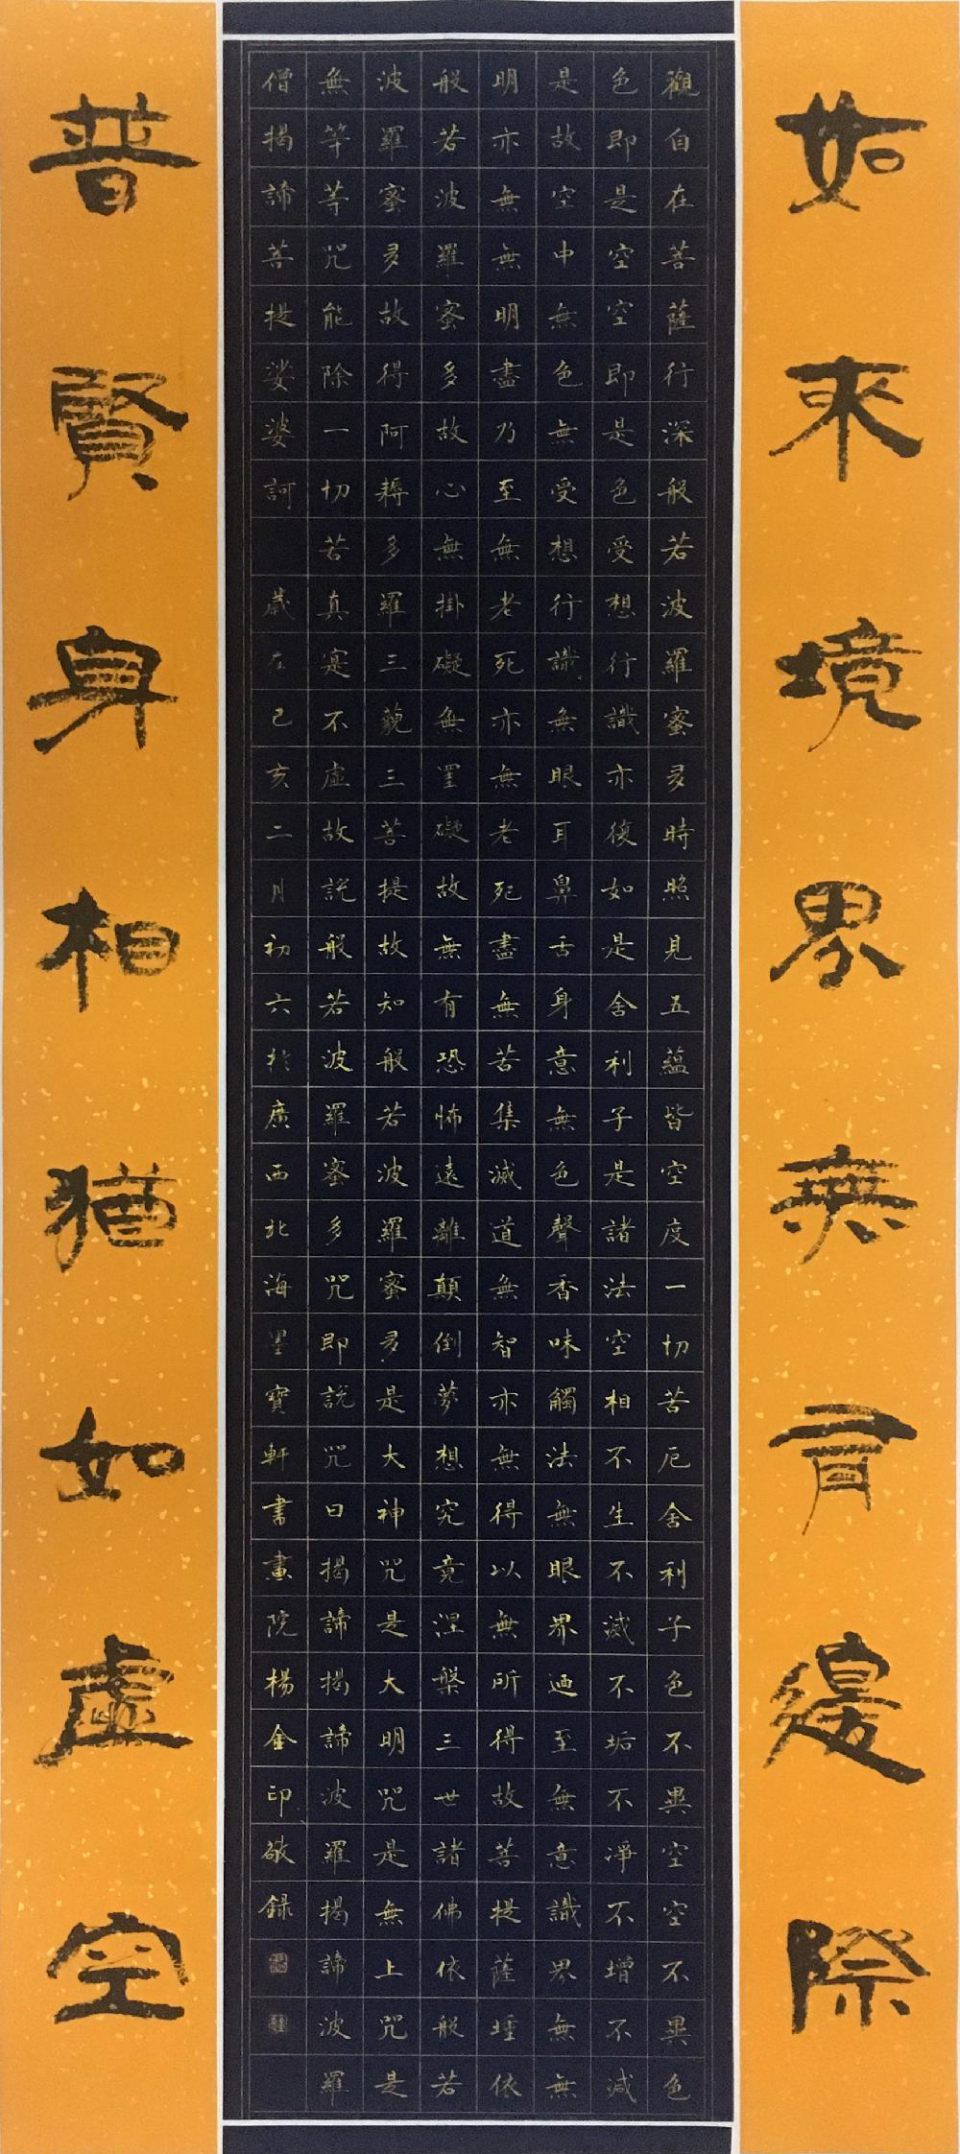 如來境界無有邊際
觀自在菩薩行深般若波羅蜜多時照見五蘊皆空度一切苦厄舍利子色不異空空不異色
色即是空空即是色受想行識亦復如是舍利子是諸法空相不生不滅不垢不淨不增不減
是故空中無色無受想行識無眼耳鼻舌身意無色聲香味觸法無眼界迺至無意識界無無
明亦無無明盡乃至無老死亦無老死盡無苦集滅道無智亦無得以無所得故菩提薩埵依
般若波羅蜜多故心無掛礙無罣礙故無有恐怖遠離顛倒夢想究竟涅槃三世諸佛依般若
波羅蜜多故得阿耨多羅三藐三菩提故知般若波羅蜜多是大神咒是大明咒是無上咒是
無等等咒能除一切苦真寔不虛故說般若波羅蜜多咒即說咒曰揭諦揭諦波羅揭諦波羅
僧揭諦菩提娑婆訶 歲在己亥二月初六於廣西北海墨寶軒書畫院楊金印敬錄
普賢身相猶如虛空